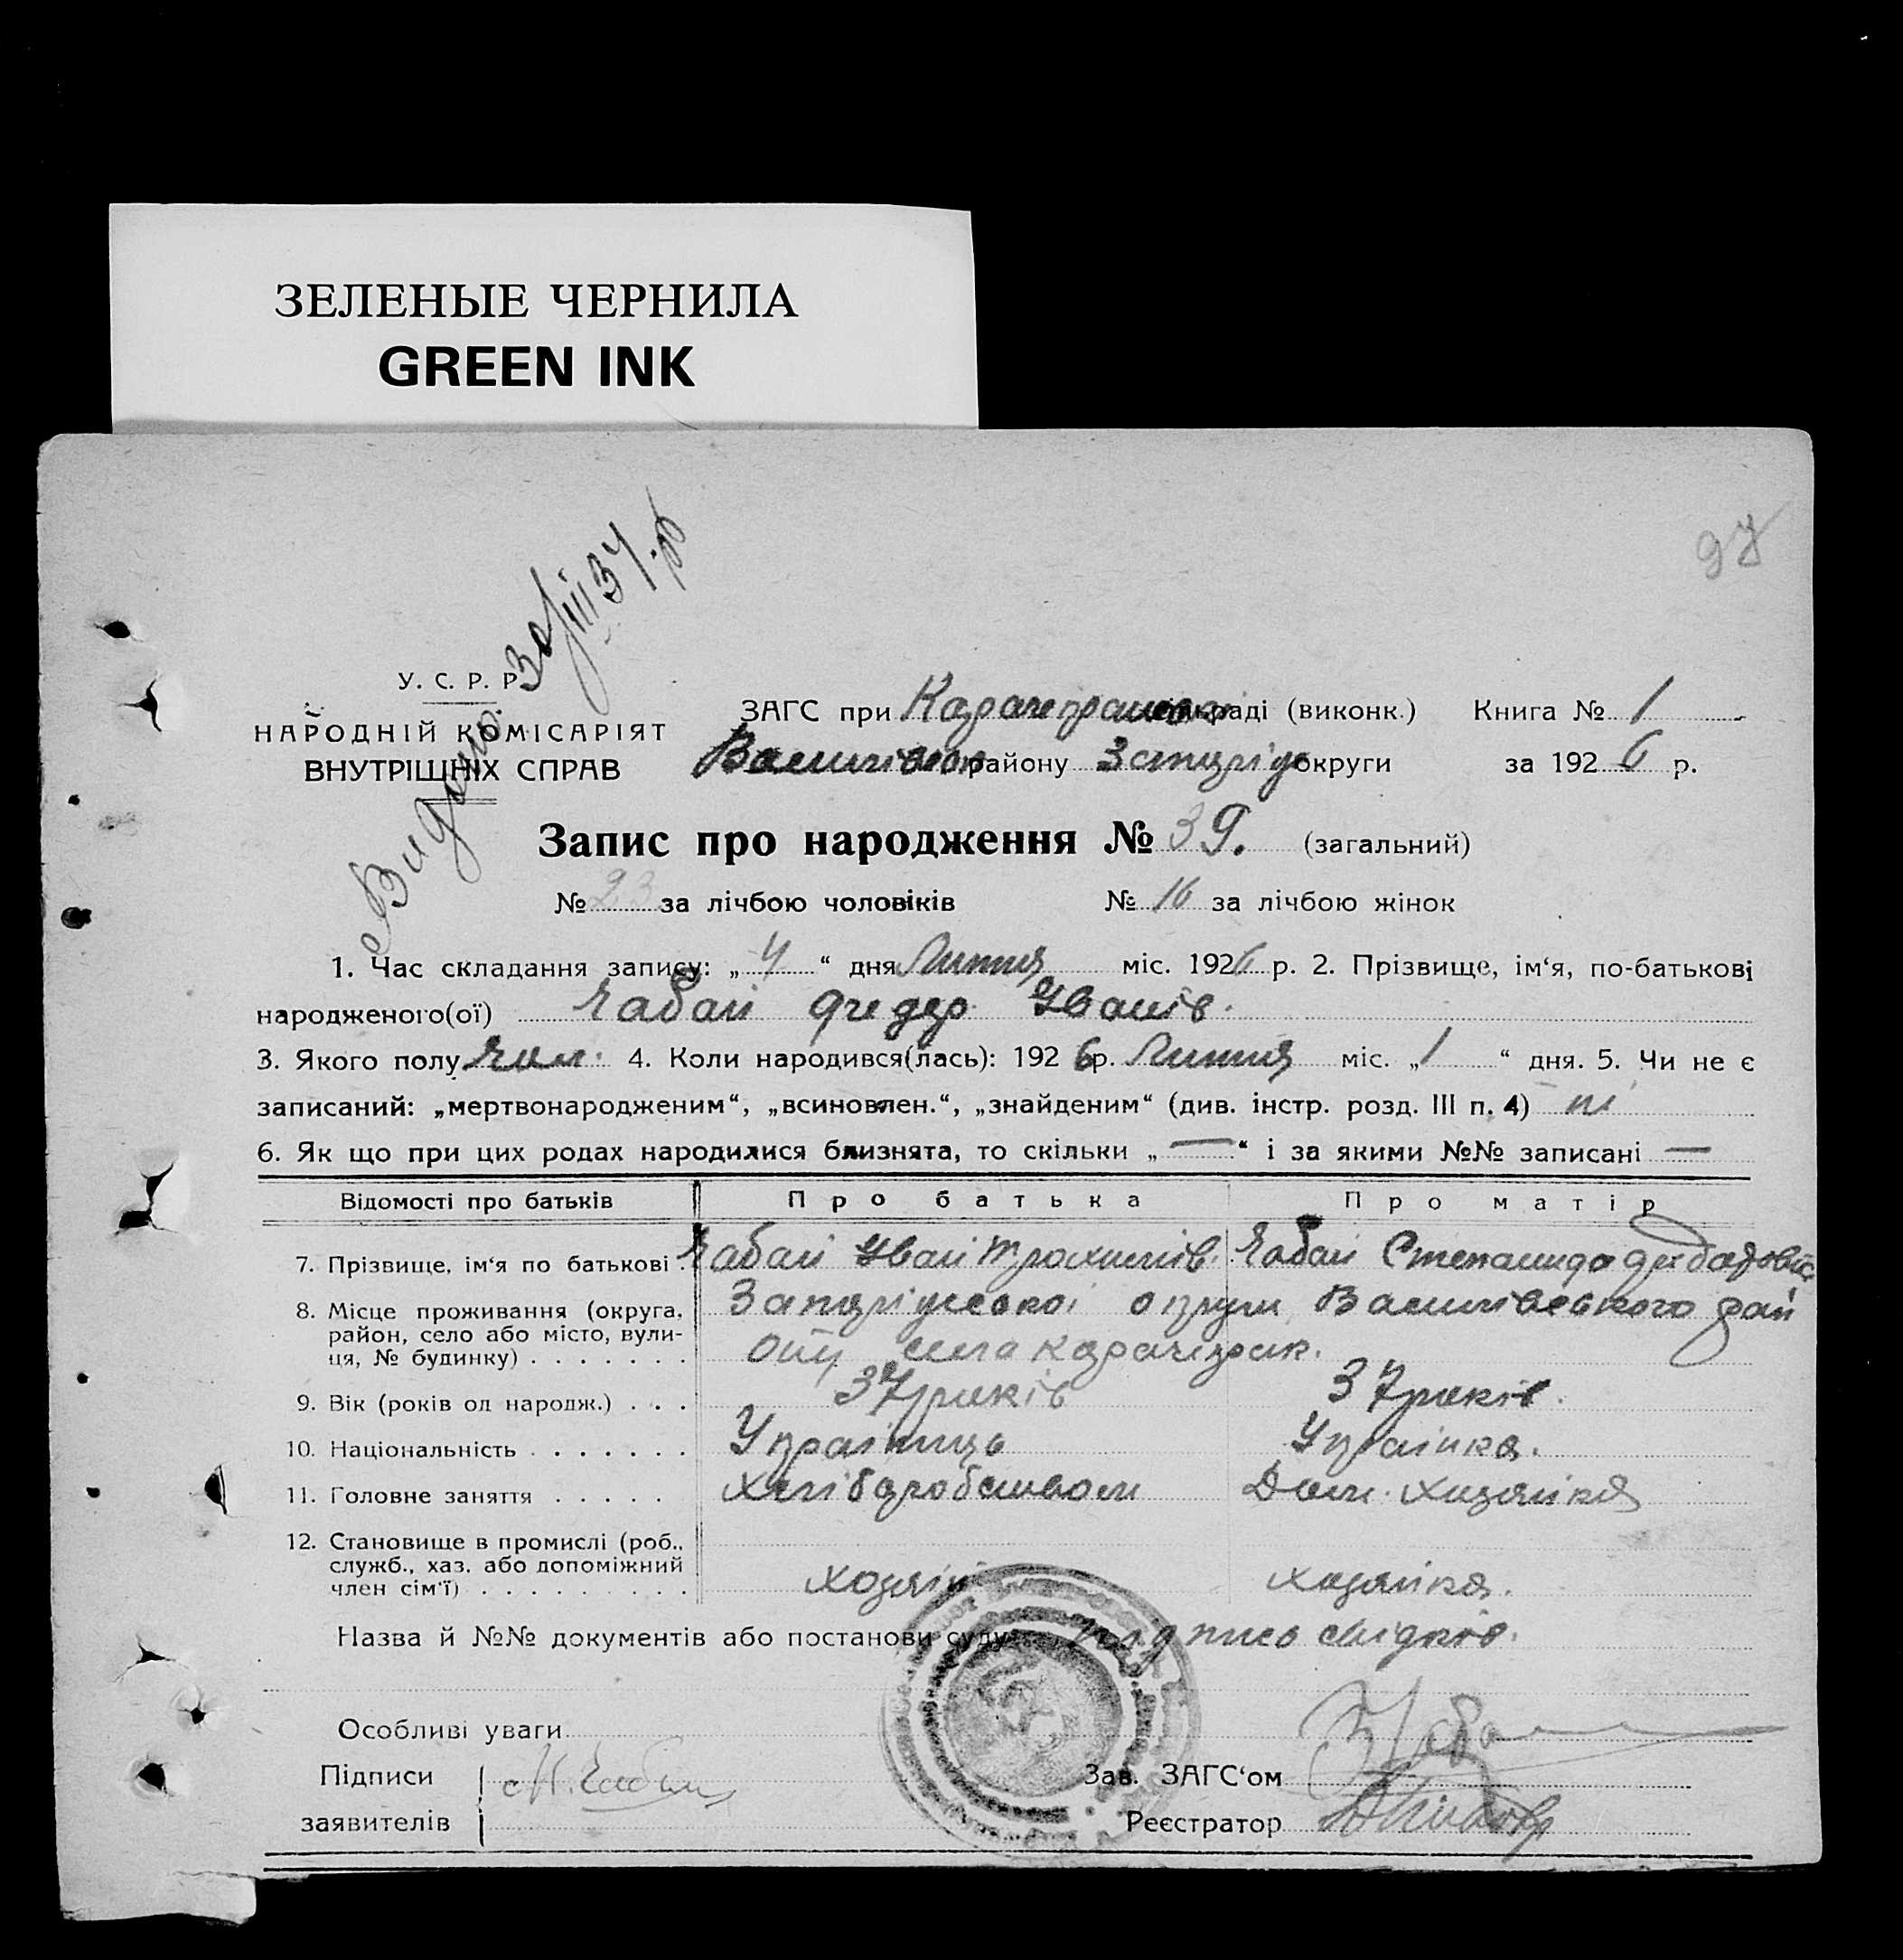 ЗЕЛЕНЫЕ ЧЕРНИЛА
GREEN INK
97
Видано 30/III 37 р
У. С. Р. Р.
НАРОДНІЙ КОМІСАРІЯТ
ВНУТРІШНІХ СПРАВ
ЗАГС при сільраді (виконк.) Книга № 1
району округи за 1926 р.
Запис про народження № 39. (загальний)
№ 23 за лічбою чоловіків № 16 за лічбою жінок
1. Час складання запису: „4“ дня Липня міс. 1926 р. 2. Прізвище, ім‘я, по-батькові
народженого(ої) Чабан Федер Іванів.
3. Якого полу чол. 4. Коли народився(лась): 1926 р. Липня міс. „1“ дня. 5. Чи не є
записаний: „мертвонародженим“, „всиновлен.“, „знайденим“ (див. інстр. розд. III п. 4) ні
6. Як що при цих родах народилися близнята, то скільки „—“ і за якими №№ записані —
Відомості про батьків Про батька Про матір
7. Прізвище, ім‘я по батькові Чабан Іван Трохимів. Чабан Степанида
8. Місце проживання (округа, район, село або місто, вулиця, № будинку) . . . . . . . Запоріжської округи Василівського рай
ону села Карачікрак.
9. Вік (років од народж.) . . . 37 років 37 років.
10. Національність . . . . . . . Українць Українка.
11. Головне заняття . . . . . Хліборобством Дом. хазяйка
12. Становище в промислі (роб., служб., хаз. або допоміжний член сім‘ї) . . . . . . . . . хозяїн хазяйка.
Назва й №№ документів або постанови суду підпись свідків.
Особливі уваги
Підписи Зав. ЗАГС‘ом
заявителів Реєстратор